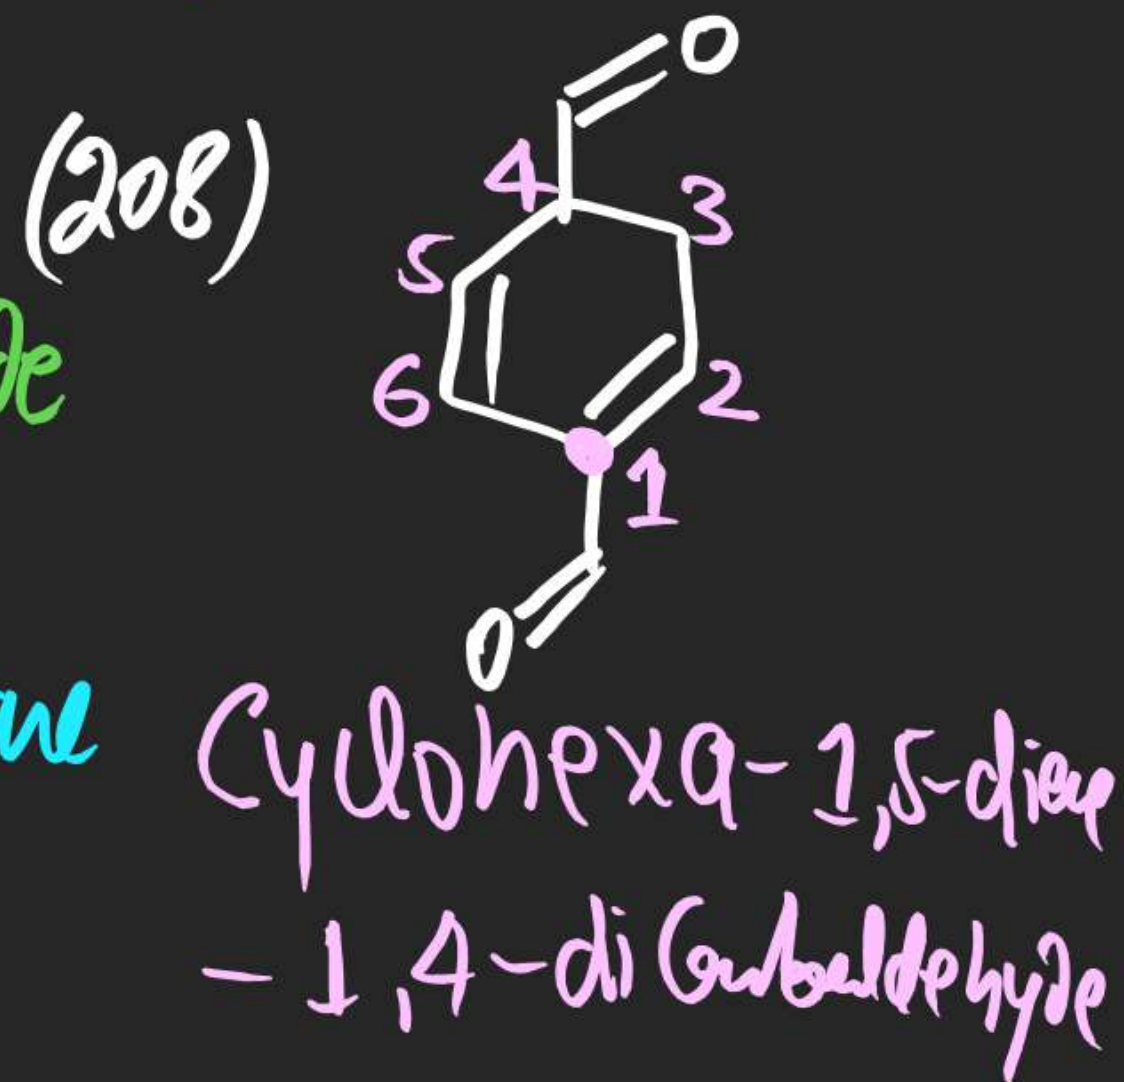 O
(208)
4
3
5
de
6
2
1
O
ne Cyclohexa-1,5-diene
-1,4-diCarbaldehyde